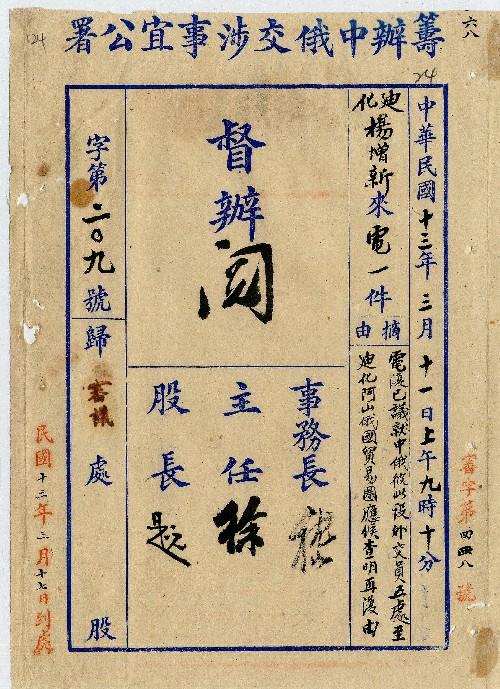 籌辦中俄交涉事宜公署
六八
24
124
中華民國十三年三月十一日上午九時十分
迪化楊增新來電一件
摘由
電復已議就中俄彼此設外交員五處至
迪化阿山俄國貿易圈應候查明再復由
督辦
閱
事務長
主任
徐
股長
字第二〇九號歸審議處 股
審字第四四八號
民國十三年三月十七日到處